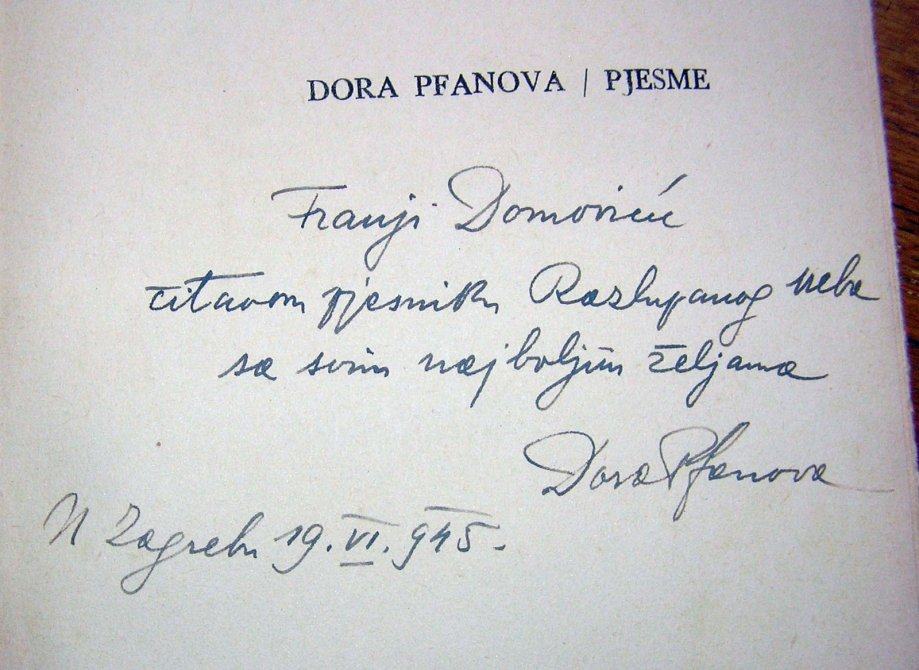 DORA PFANOVA / PJESME
Franji Domoviću
čitavom pjesniku Raslupanog neba
sa svim najboljim željama
Dora Pfanova
U Zagrebu 19. VI. 945.